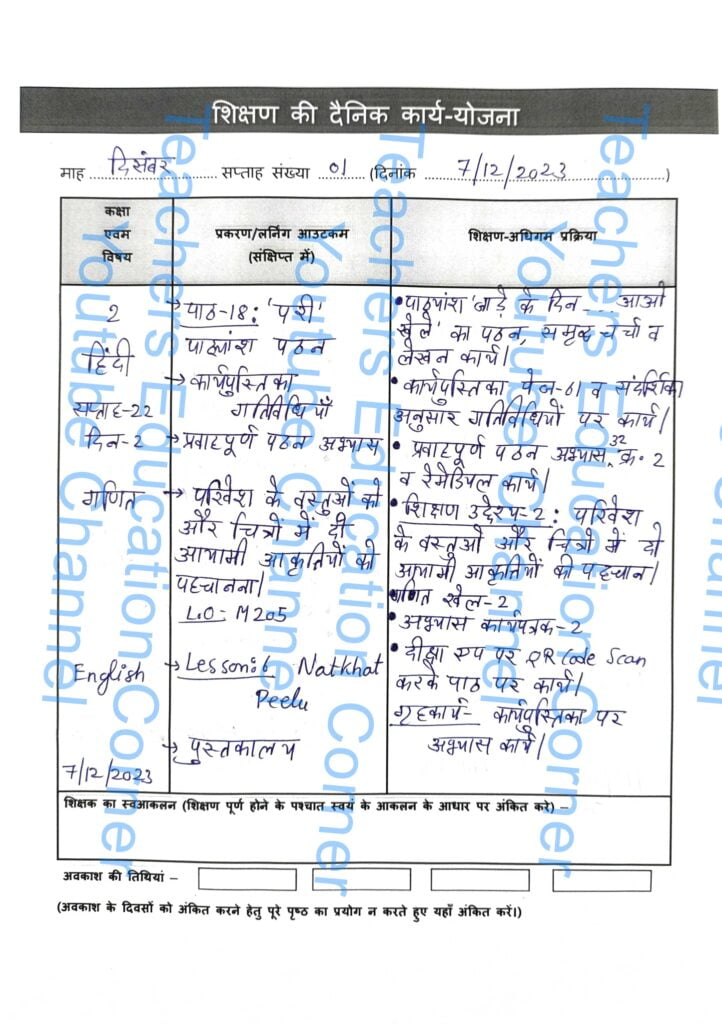 शिक्षण की दैनिक कार्य-योजना
माह दिसंबर सप्ताह संख्या 01 (दिनांक 7/12/2023)
कक्षा
एवम
विषय
प्रकरण/लर्निंग आउटकम
(संक्षिप्त में)
शिक्षण-अधिगम प्रक्रिया
2
हिंदी
सप्ताह-22
दिन-2
→ पाठ-18: 'परी'
पाठ्यांश पठन
→ कार्यपुस्तिका
गतिविधियाँ
→ प्रवाहपूर्ण पठन अभ्यास
• पाठ्यांश 'जाड़े के दिन.... आओ
खेलें' का पठन, समृद्ध चर्चा व
लेखन कार्य।
• कार्यपुस्तिका पेज-61 व संदर्शिका
अनुसार गतिविधियों पर कार्य।
• प्रवाहपूर्ण पठन अभ्यास 32 क्र. 2
व रेमेडियल कार्य।
गणित
→ परिवेश के वस्तुओं को
और चित्रों में दी
आयामी आकृतियों को
पहचानना।
L.O:- M205
• शिक्षण उद्देश्य-2: परिवेश
के वस्तुओं और चित्रों में दो
आयामी आकृतियों की पहचान।
गणित खेल-2
• अभ्यास कार्यपत्रक-2
English
→ Lesson:6 Natkhat
Peelu
→ पुस्तकालय
• दीक्षा एप पर QR Code Scan
करके पाठ पर कार्य।
गृहकार्य- कार्यपुस्तिका पर
अभ्यास कार्य।
7/12/2023
शिक्षक का स्वआकलन (शिक्षण पूर्ण होने के पश्चात स्वयं के आकलन के आधार पर अंकित करे) –
अवकाश की तिथियां –
(अवकाश के दिवसों को अंकित करने हेतु पूरे पृष्ठ का प्रयोग न करते हुए यहाँ अंकित करें।)
Teachers Education Corner
Youtube Channel
Teachers Education Corner
Youtube Channel
Teachers Education Corner
Youtube Channel